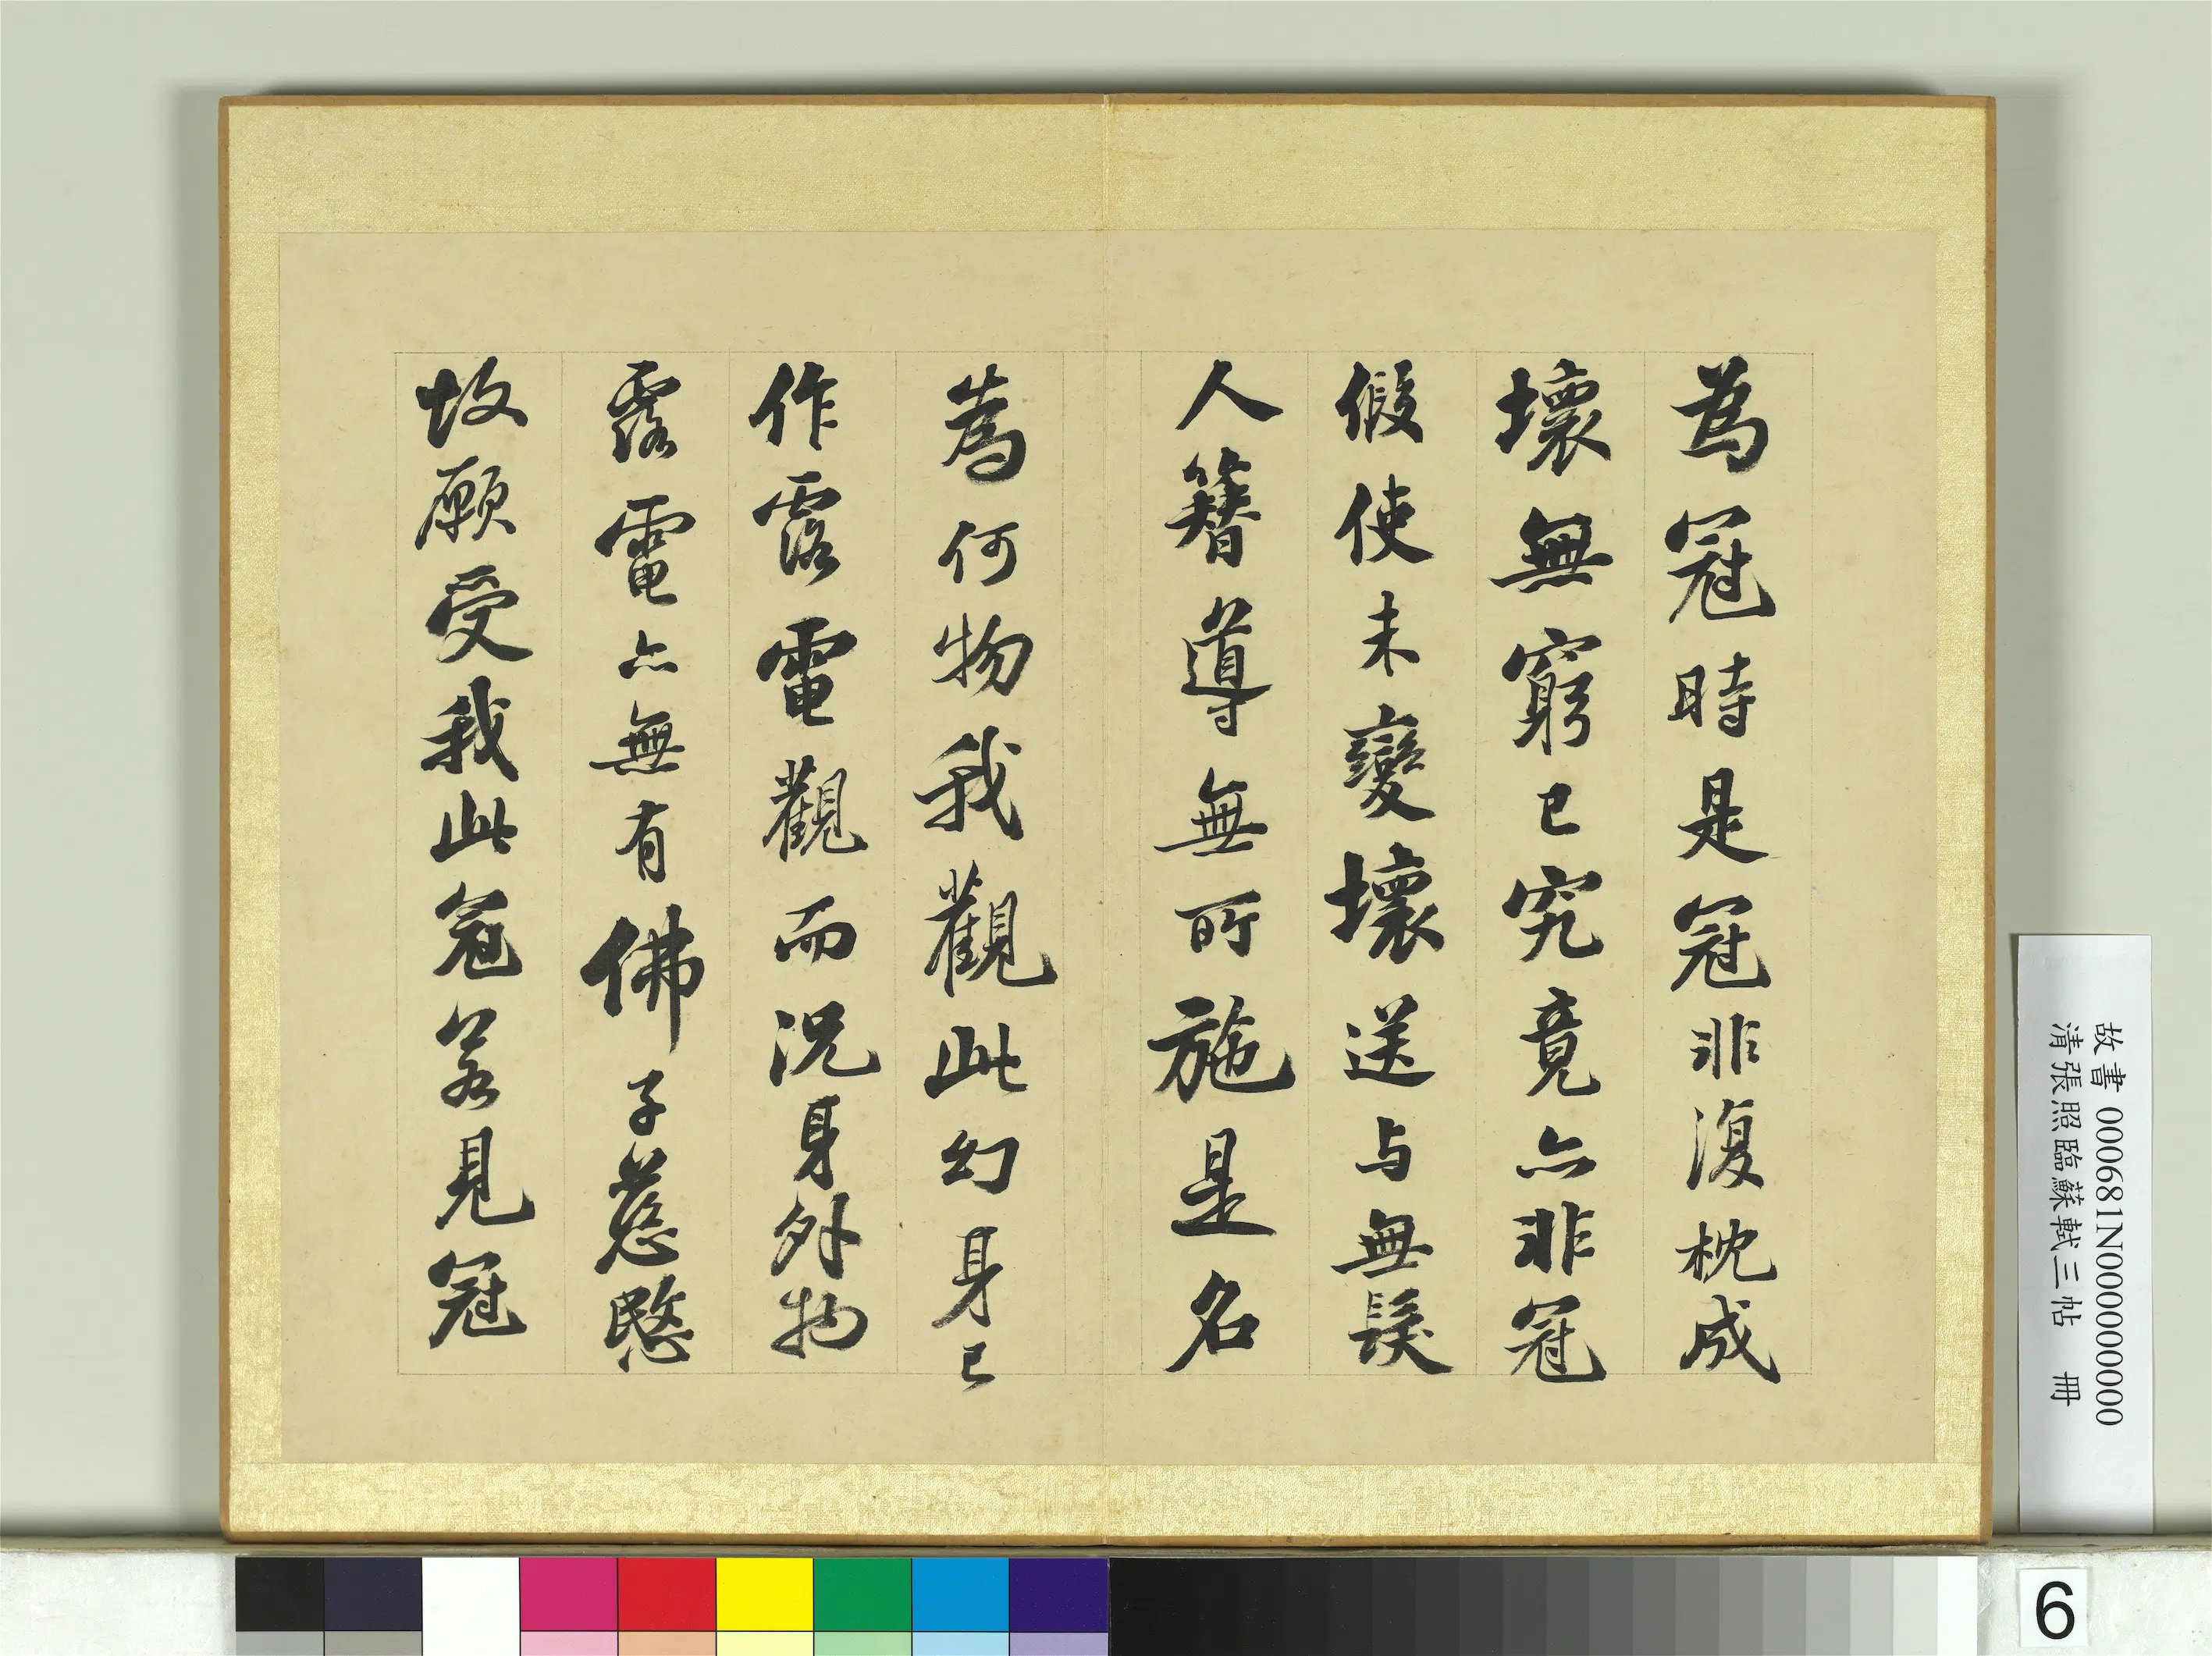 為冠時是冠非復枕成
壞無窮已究竟亦非冠
假使未變壞送与無髮
人簪導無所施是名
為何物我觀此幻身已
作露電觀而況身外物
露電亦無有佛子慈愍
故願受我此冠若見冠
故書 000681N000000000
清張照臨蘇軾三帖 冊
6